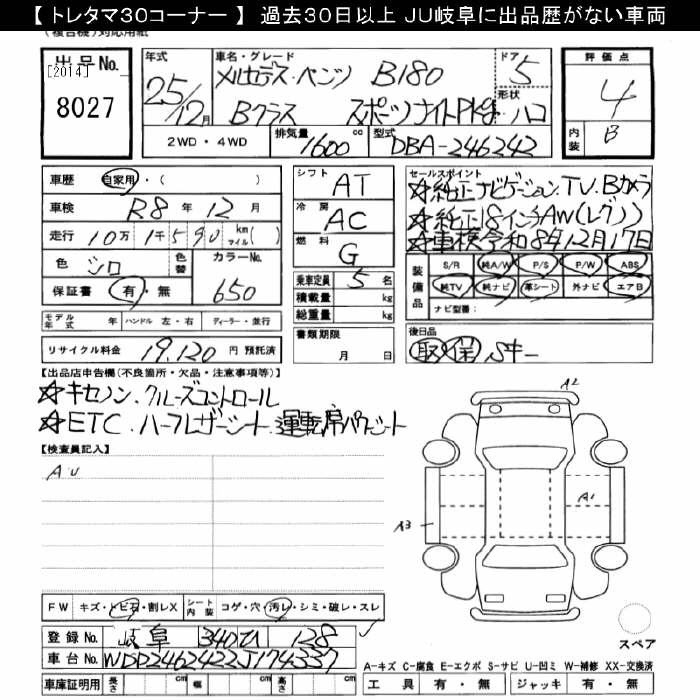 【 トレタマ30コーナー 】 過去30日以上 JU岐阜に出品歴がない車両
(複合機)対応用紙
出品No.
[2014]
8027
年式
25/12月
車名・グレード
メルセデス・ベンツ B180
Bクラス スポーツナイトPkg
ドア
5
形状
ハコ
評価点
4
内装
B
2WD・4WD
排気量
1600 cc
型式
DBA-246242
車歴 自家用・( )
車検 R8年12月
走行 10万1千590 km マイル( )
色 シロ
色替
カラーNo.
650
保証書 有・無
シフト
AT
冷房
AC
燃料
G
乗車定員 5名
積載量 kg
総重量 kg
書類期限
月 日
セールスポイント
☆純正ナビゲーション.TV.Bカメラ
☆純正18インチAW(レグノ)
☆車検令和8年12月17日
装備品
S/R 純A/W P/S P/W ABS
純TV 純ナビ 革シート 外ナビ エアB
ナビ型番:
モデル年式 年 ハンドル 左・右 ディーラー・並行
リサイクル料金 19,120円 預託済
後日品
取 保 Sキー
【出品店申告欄(不良箇所・欠品・注意事項等)】
☆キセノン.クルーズコントロール
☆ETC.ハーフレザーシート.運転席パワーシート
【検査員記入】
AU
A2
A1
A3
FW キズ・トビ石・割レX シート内装 コゲ・穴・汚レ・シミ・破レ・スレ
登録No. 岐阜 340 128
車台No. WDD2462422J174337
車庫証明用 長さ cm 幅 cm 高さ cm
スペア
A-キズ C-腐食 E-エクボ S-サビ U-凹ミ W-補修 XX-交換済
工具 有・無 ジャッキ 有・無